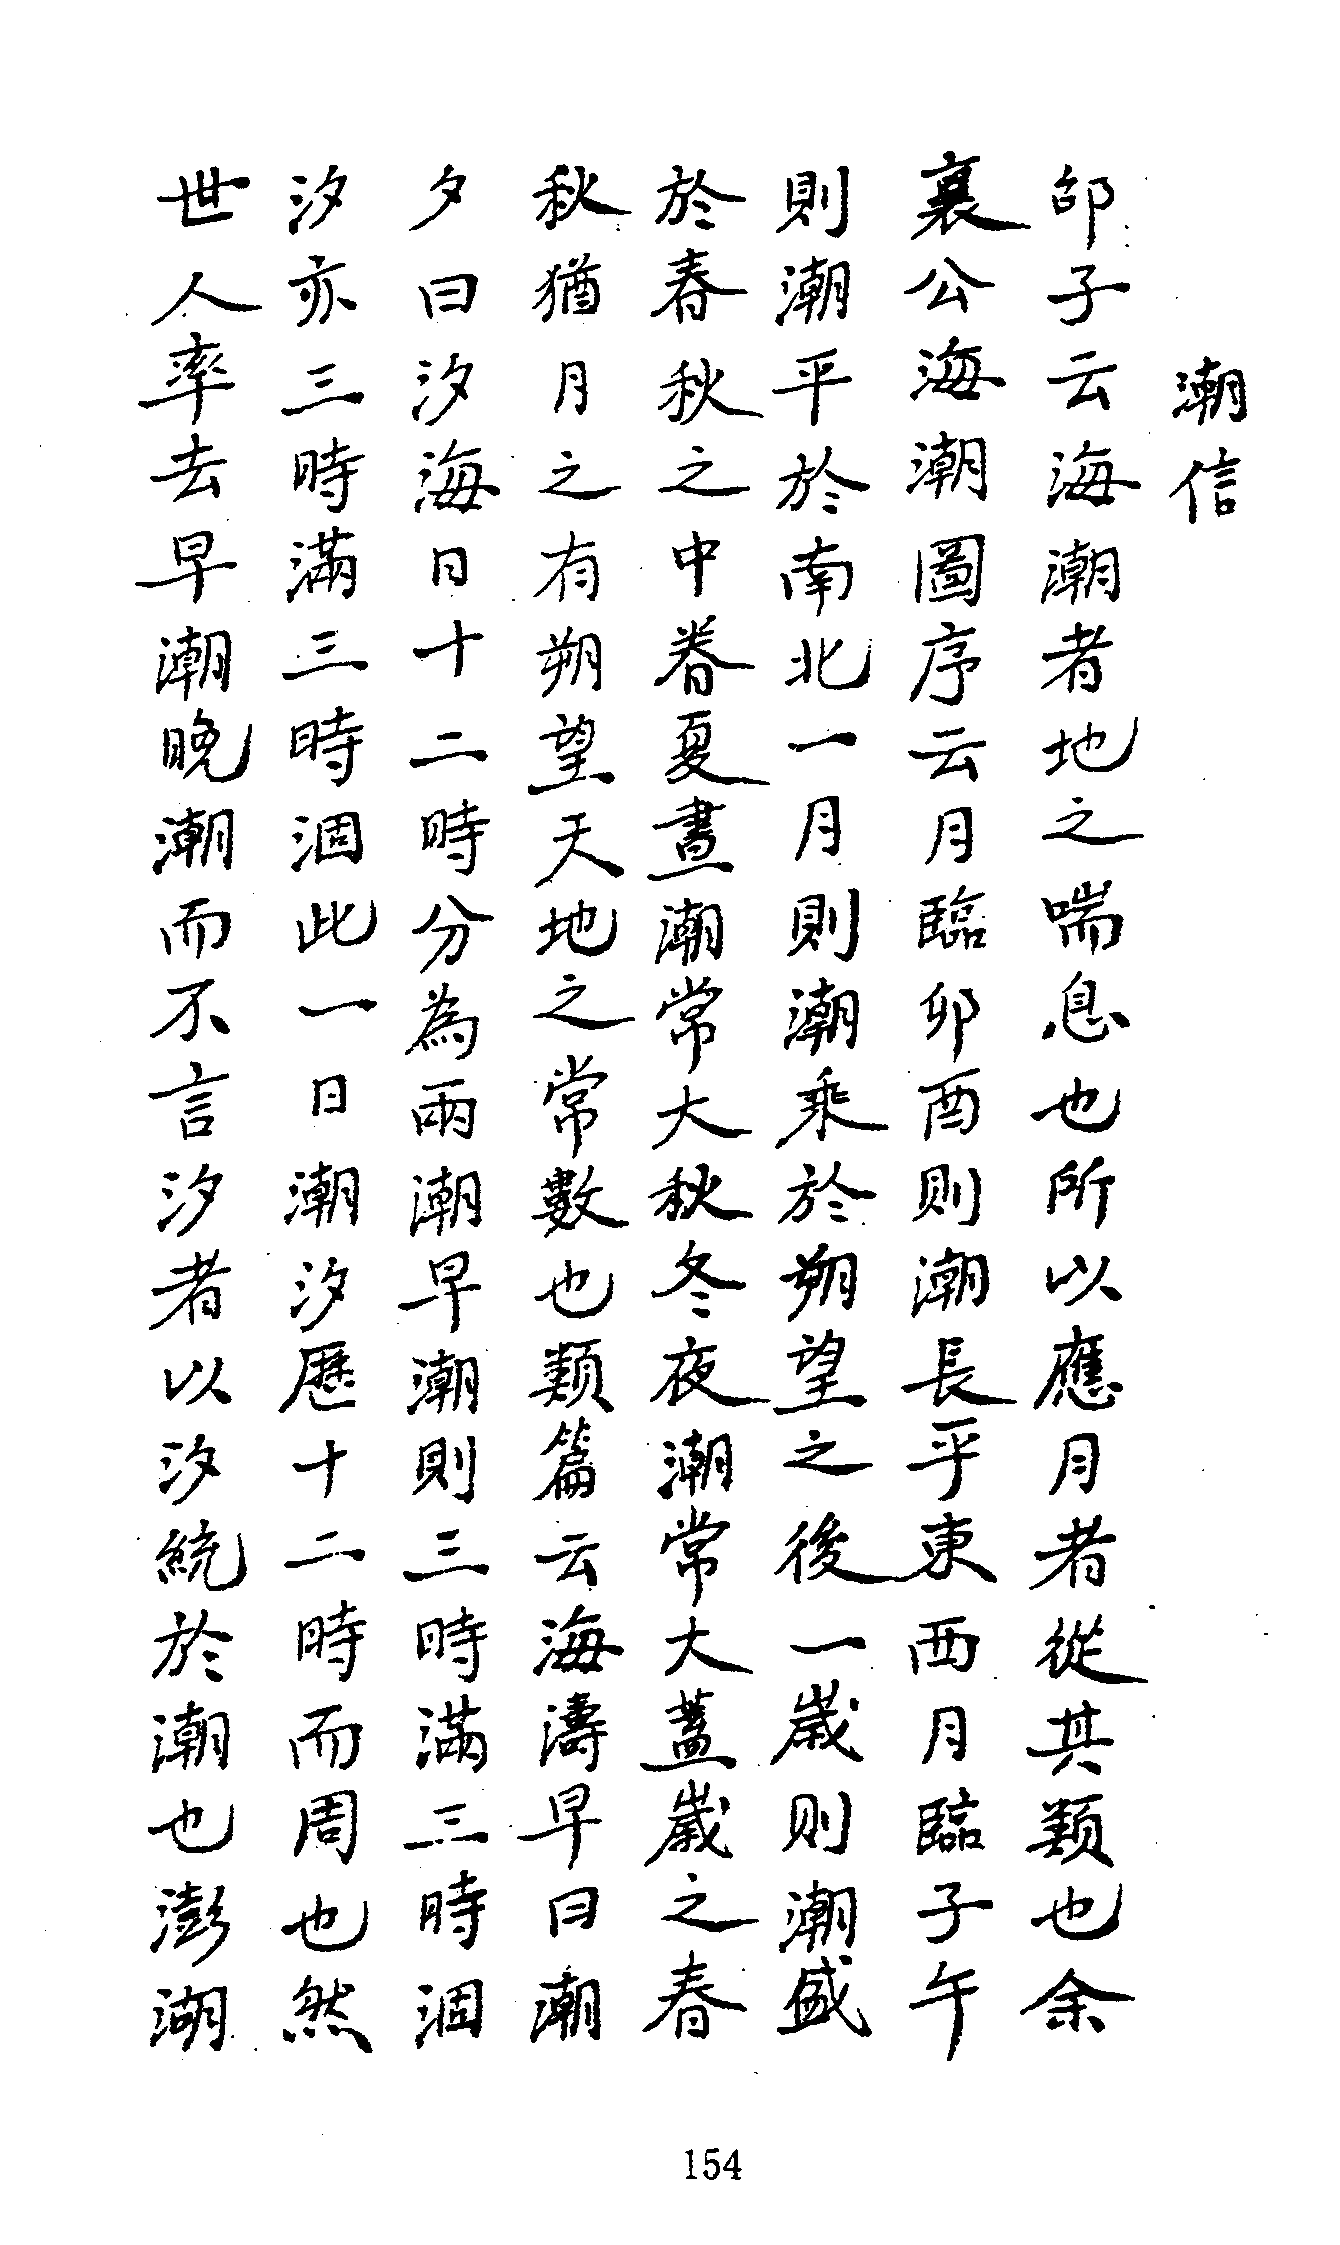 潮信
邵子云海潮者地之喘息也所以應月者從其類也余
襄公海潮圖序云月臨卯酉則潮長乎東西月臨子午
則潮平於南北一月則潮乘於朔望之後一歲則潮盛
於春秋之中眷夏晝潮常大秋冬夜潮常大蓋歲之春
秋猶月之有朔望天地之常數也類篇云海濤早曰潮
夕曰汐海日十二時分為兩潮早潮則三時滿三時涸
汐亦三時滿三時涸此一日潮汐歷十二時而周也然
世人率去早潮晚潮而不言汐者以汐統於潮也澎湖
154